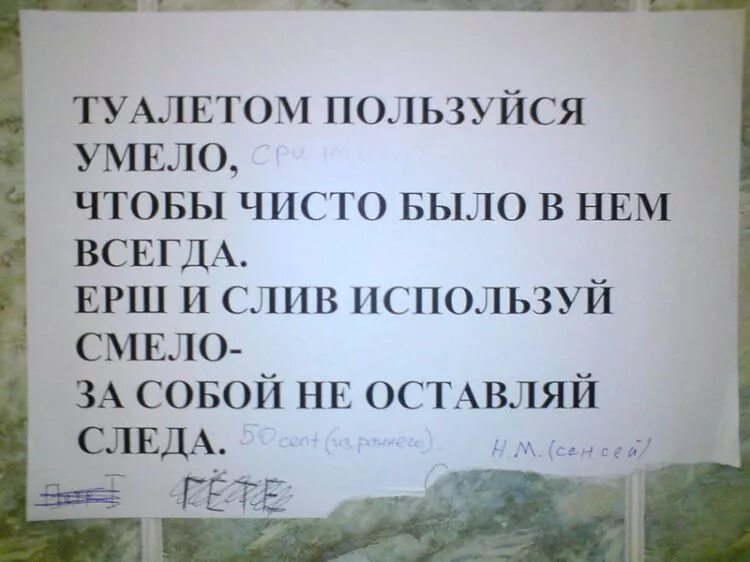 ТУАЛЕТОМ ПОЛЬЗУЙСЯ
УМЕЛО,
ЧТОБЫ ЧИСТО БЫЛО В НЕМ
ВСЕГДА.
ЕРШ И СЛИВ ИСПОЛЬЗУЙ
СМЕЛО-
ЗА СОБОЙ НЕ ОСТАВЛЯЙ
СЛЕДА. 50 cent (из раннего). Н.М. (сенсей)
ГЁТЕ